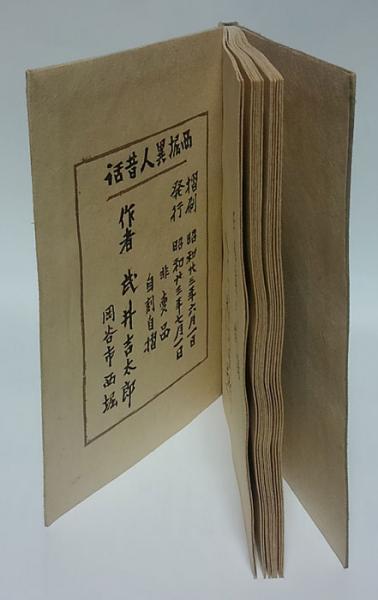 西堀異人昔話
摺刷 昭和廿三年六月一日
発行 昭和廿三年七月一日
非売品
自刻自摺
作者 武井吉太郎
岡谷市西堀